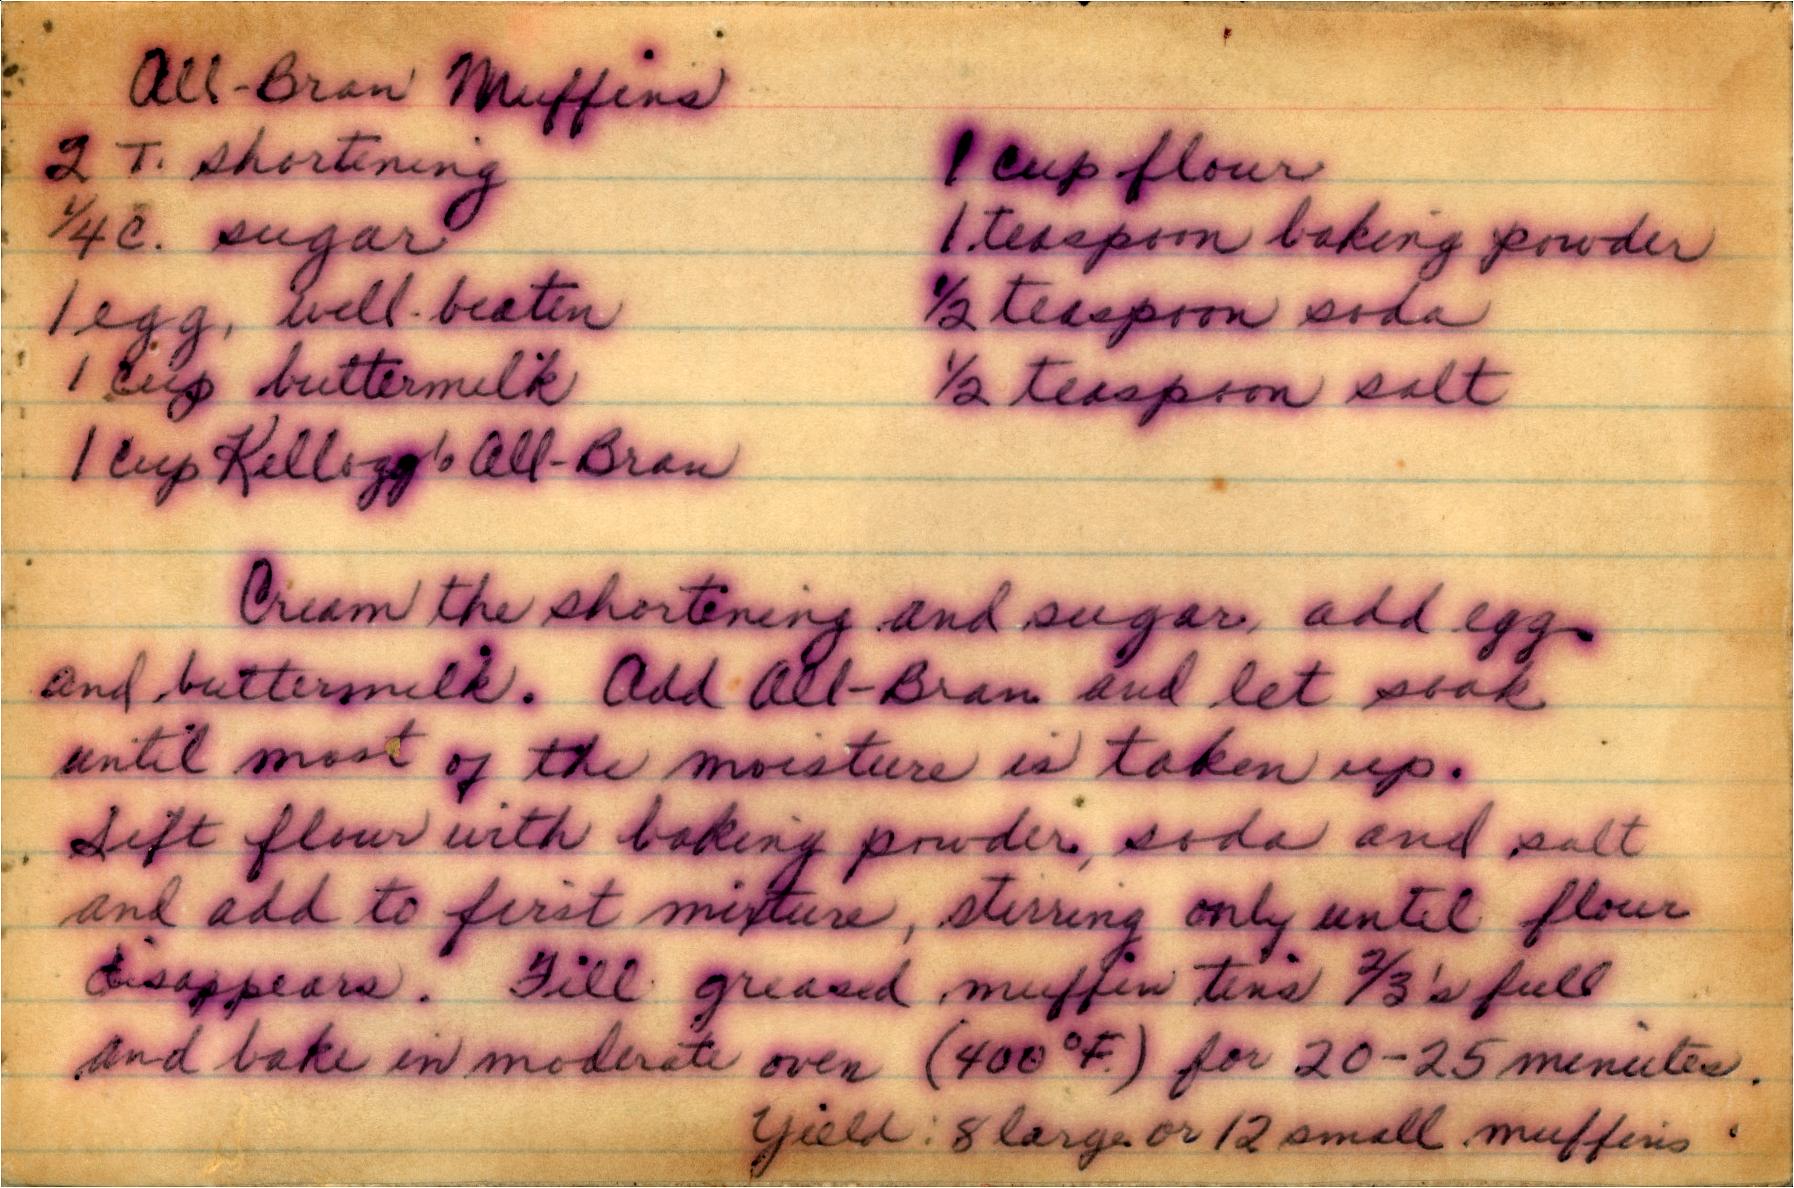 All-Bran Muffins
2 T. shortening
1/4 c. sugar
1 egg, well-beaten
1 cup buttermilk
1 cup Kellogg's All-Bran
1 cup flour
1 teaspoon baking powder
1/2 teaspoon soda
1/2 teaspoon salt
Cream the shortening and sugar, add egg
and buttermilk. Add All-Bran and let soak
until most of the moisture is taken up.
Sift flour with baking powder, soda and salt
and add to first mixture, stirring only until flour
disappears. Fill greased muffin tins 2/3's full
and bake in moderate oven (400°F.) for 20-25 minutes.
Yield: 8 large or 12 small muffins.